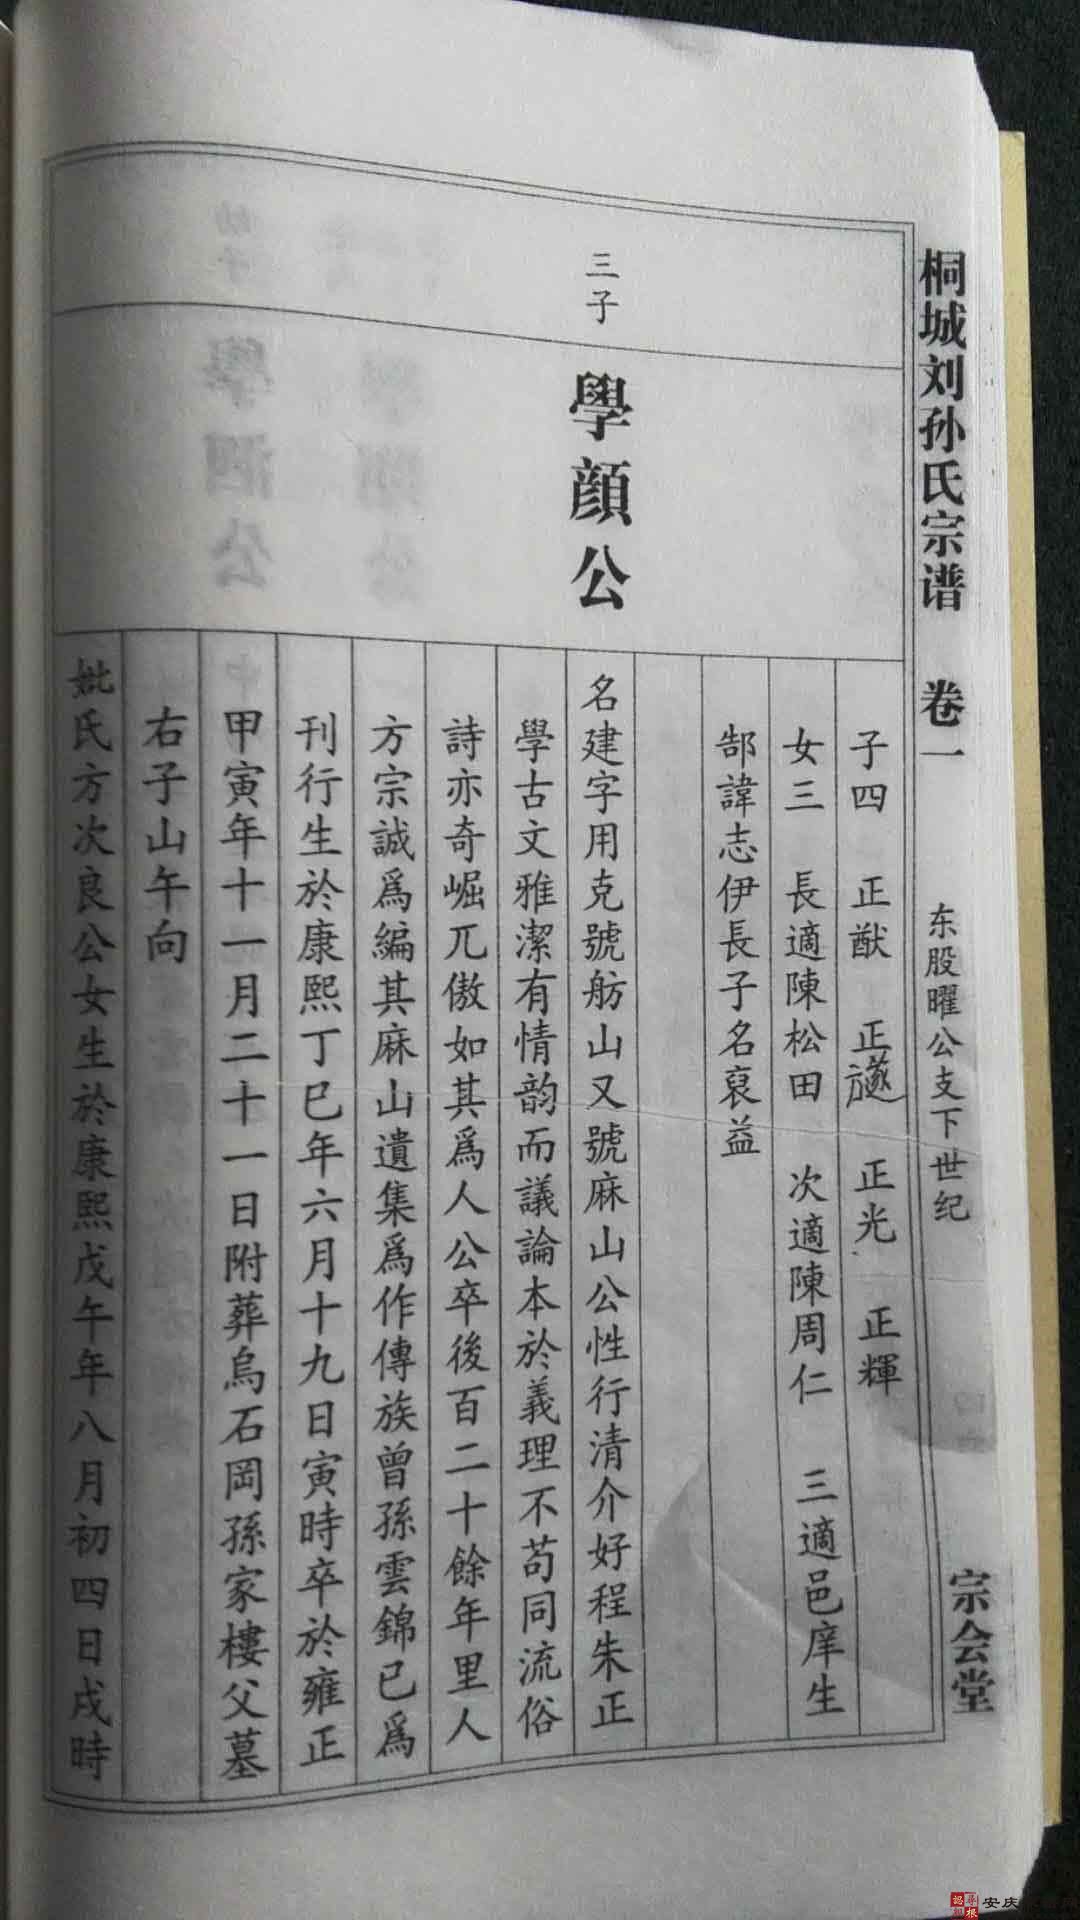 桐城刘孙氏宗谱 卷一 东股曜公支下世纪 宗会堂
子四 正猷 正邃 正光 正輝
女三 長適陳松田 次適陳周仁 三適邑庠生
郜諱志伊長子名裒益
三子
學顔公
名建字用克號舫山又號麻山公性行清介好程朱正
學古文雅潔有情韵而議論本於義理不苟同流俗
詩亦奇崛兀傲如其爲人公卒後百二十餘年里人
方宗誠爲編其麻山遺集爲作傳族曾孫雲錦已爲
刊行生於康熙丁巳年六月十九日寅時卒於雍正
甲寅年十一月二十一日附葬烏石岡孫家樓父墓
右子山午向
妣氏方次良公女生於康熙戊午年八月初四日戌時
安庆